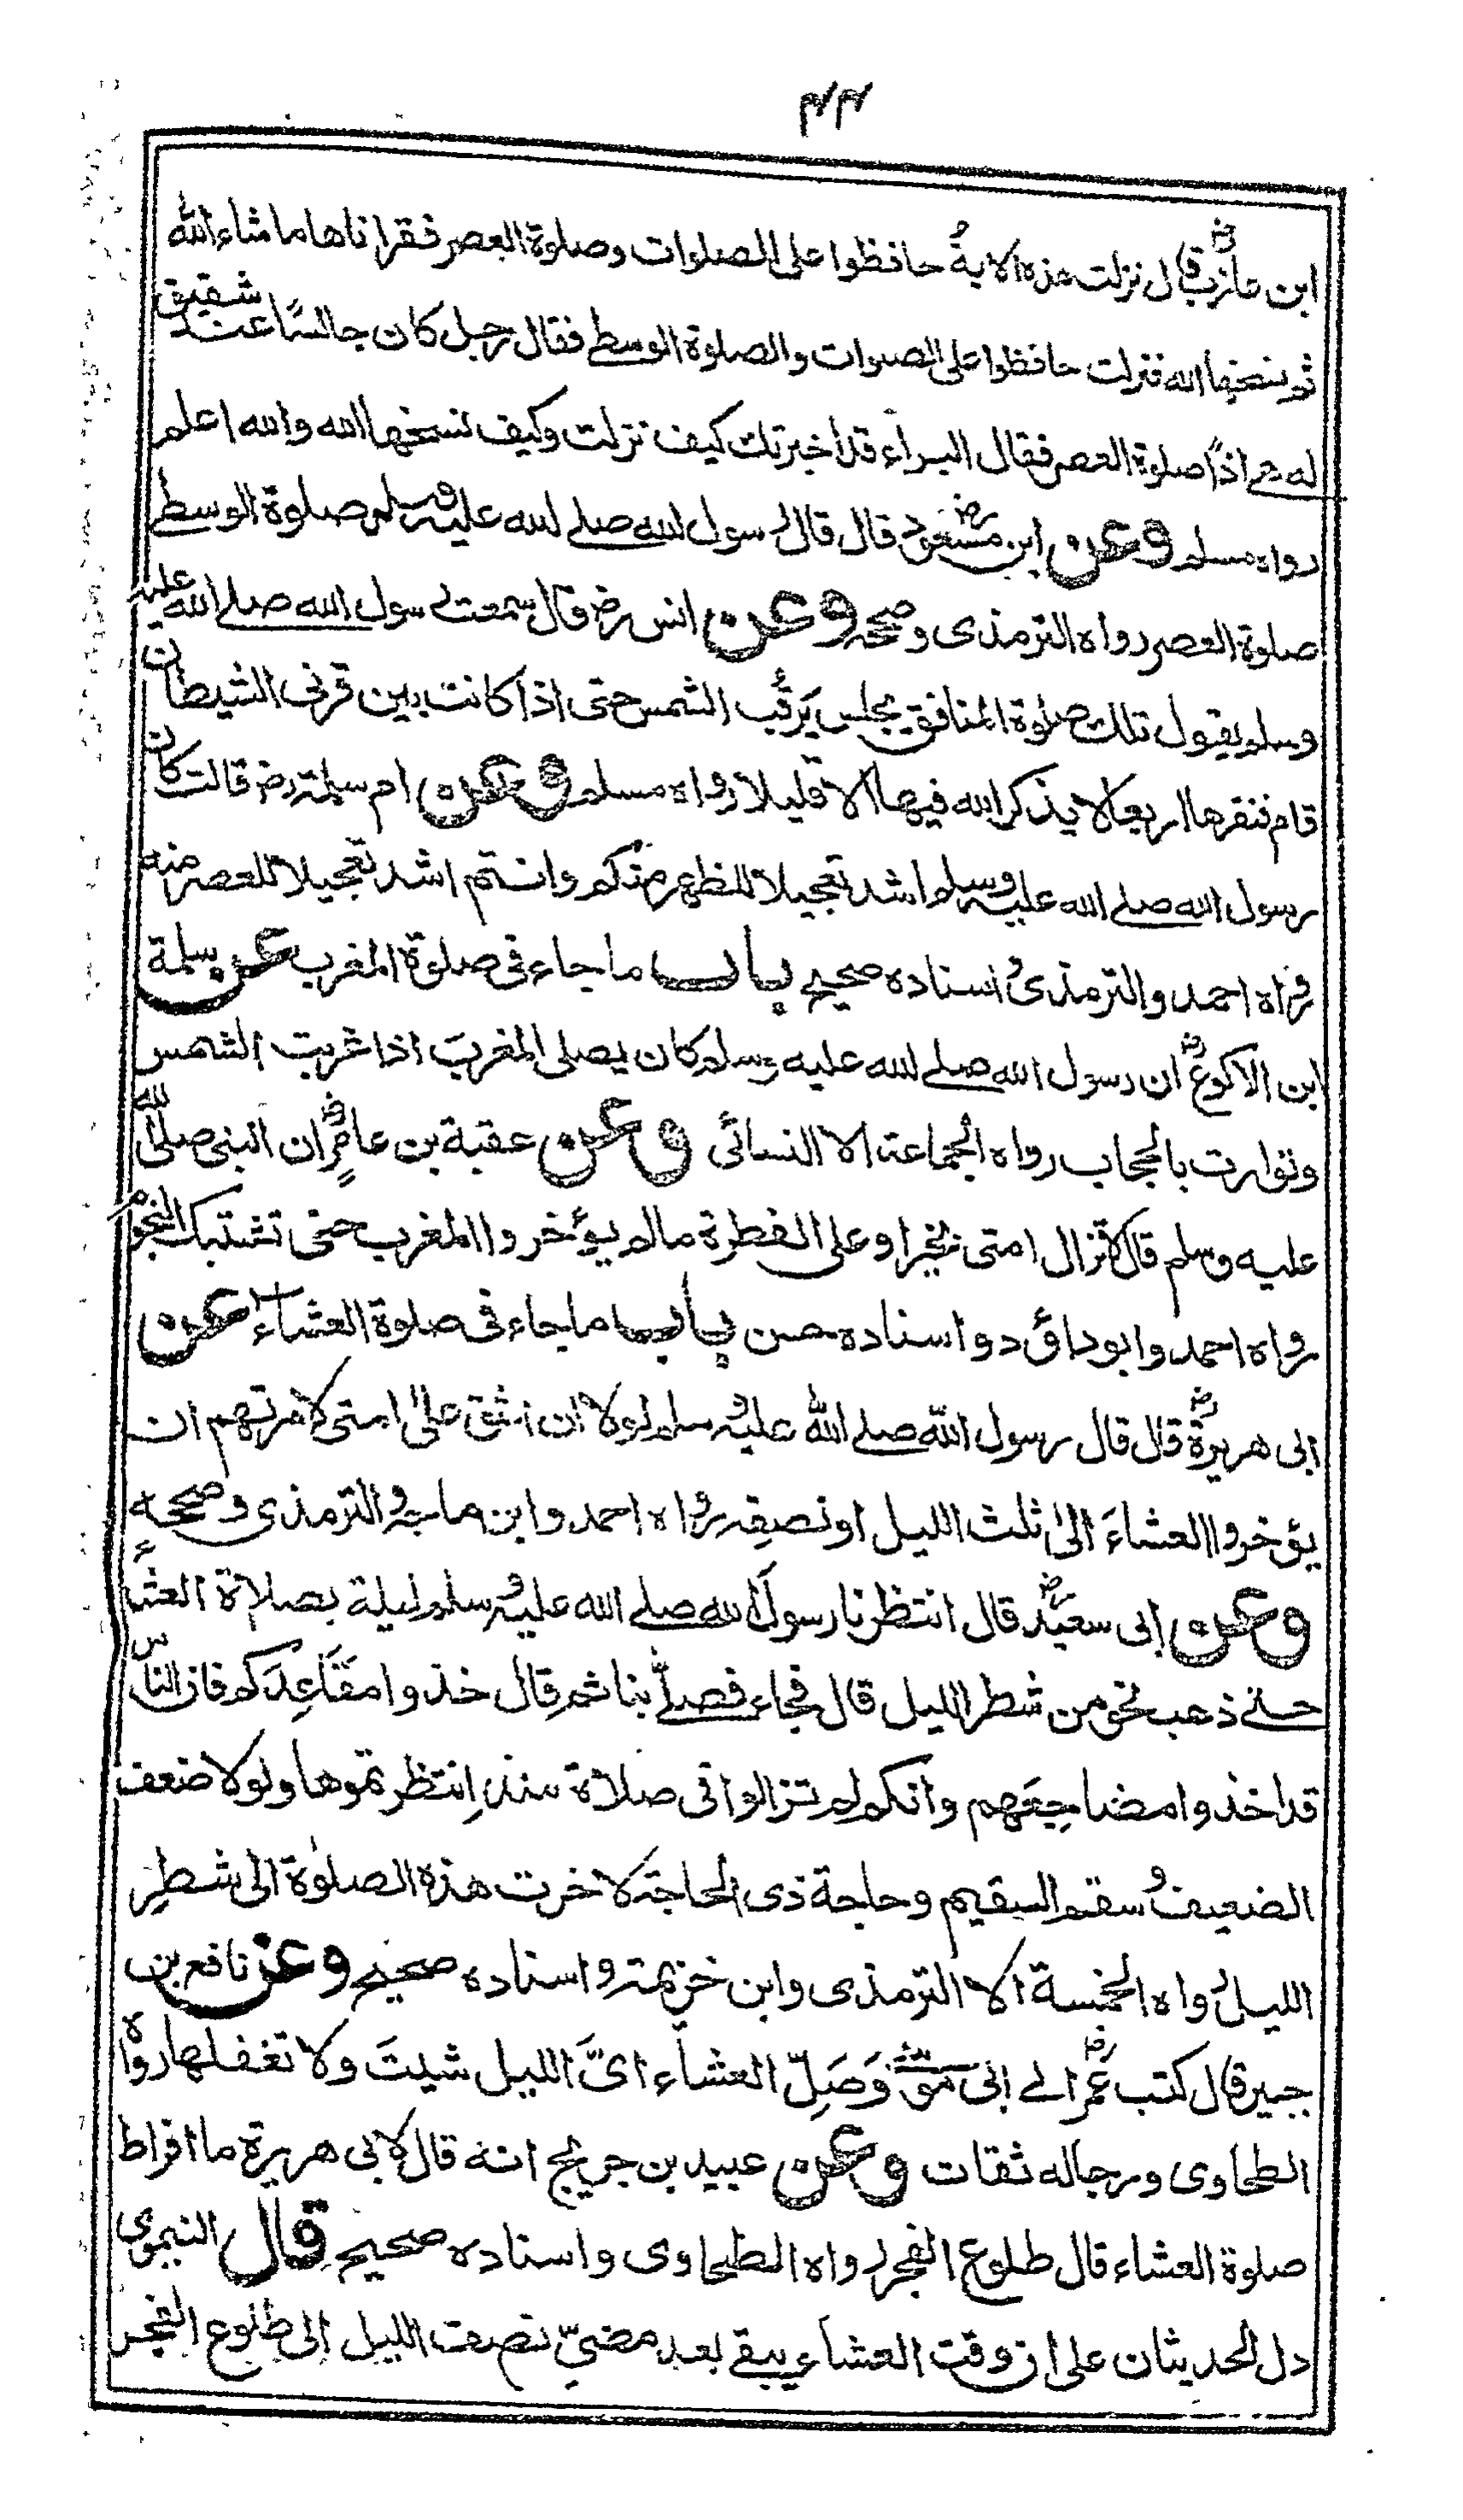 ۴۴
ابن عازبؓ قال نزلت هذه الاية حافظوا على الصلوات وصلوة العصر فقرأناها ماشاء الله
ثم نسخها الله فنزلت حافظوا على الصلوات والصلوة الوسطى فقال رجل كان جالسًا عند شقيق
له هى اذًا صلوة العصر فقال البراء قد اخبرتك كيف نزلت وكيف نسخها الله والله اعلم
رواه مسلم وعن ابن مسعودؓ قال قال رسول الله صلے الله عليه وسلم صلوة الوسطے
صلوة العصر رواه الترمذى وصححه وعن انس رض قال سمعت رسول الله صلے الله عليه
وسلم يقول تلك صلوة المنافق يجلس يَرقُب الشمس حتى اذا كانت بين قرنى الشيطان
قام فنقرها اربعا لا يذكر الله فيها الا قليلا رواه مسلم وعن ام سلمة رض قالت كان
رسول الله صلے الله عليه وسلم اشد تعجيلا للظهر منكم وانتم اشد تعجيلا للعصر منه
رواه احمد والترمذى واسناده صحيح باب ما جاء فى صلوة المغرب عن سلمة
ابن الاكوعؓ ان رسول الله صلے الله عليه وسلم كان يصلى المغرب اذا غربت الشمس
وتوارت بالحجاب رواه الجماعة الا النسائى وعن عقبة بن عامرؓ ان النبى صلى الله
عليه وسلم قال لا تزال امتى بخير او على الفطرة مالم يؤخروا المغرب حتى تشتبك النجوم
رواه احمد وابو داؤد واسناده حسن باب ما جاء فى صلوة العشاء عن
ابى هريرةؓ قال قال رسول الله صلے الله عليه وسلم لولا ان اشق على امتى لامرتهم ان
يؤخروا العشاءَ الىٰ ثلث الليل او نصفِه رواه احمد وابن ماجه والترمذى وصححه
وعن ابى سعيدؓ قال انتظرنا رسول الله صلے الله عليه وسلم ليلة بصلاة العشاء
حتے ذهب نحو من شطر الليل قال فجاء فصلےّ بنا ثم قال خذوا مقَاعِدَكم فان الناس
قد اخذوا مضاجِعَهم وانكم لم تزالوا فى صلاة منذ اِنتظرتموها ولولا ضعف
الضعيف وسقم السقيم وحاجة ذى الحاجة لاخرت هذه الصلوٰة الى شطرِ
الليل رواه الخمسة الا الترمذى وابن خزيمة واسناده صحيح وعن نافع بن
جبير قال كتب عمرؓ الے ابى موسىؓ وَصَلِّ العشاء اىَّ الليل شيتَ ولا تغفلها رواه
الطحاوى ورجاله ثقات وعن عبيد بن جريج انه قال لابى هريرة ما افراط
صلوة العشاء قال طلوع الفجر رواه الطحاوى واسناده صحيح قال النيموى
دل الحديثان على ان وقت العشاءِ يبقے بعد مضىِّ نصف الليل الى طلوع الفجر